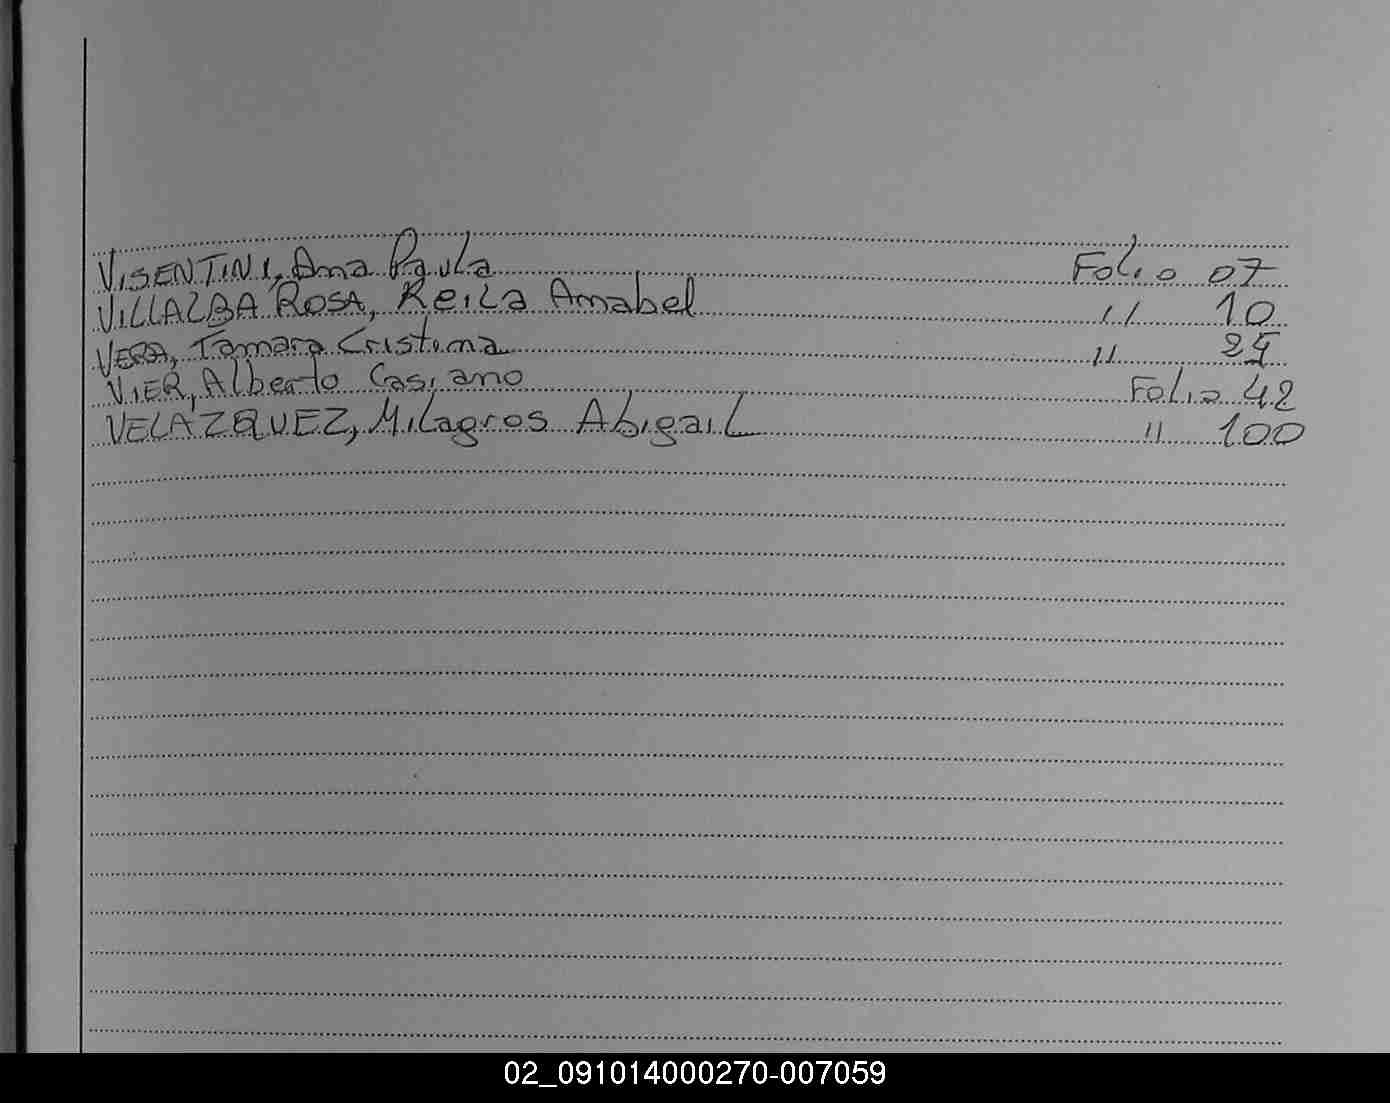 VISENTINI, Ana Paula Folio 07
VILLALBA ROSA, Keila Amabel " 10
VERA, Tamara Cristina " 25
VIER, Alberto Casiano Folio 42
VELAZQUEZ, Milagros Abigail " 100
02_091014000270-007059